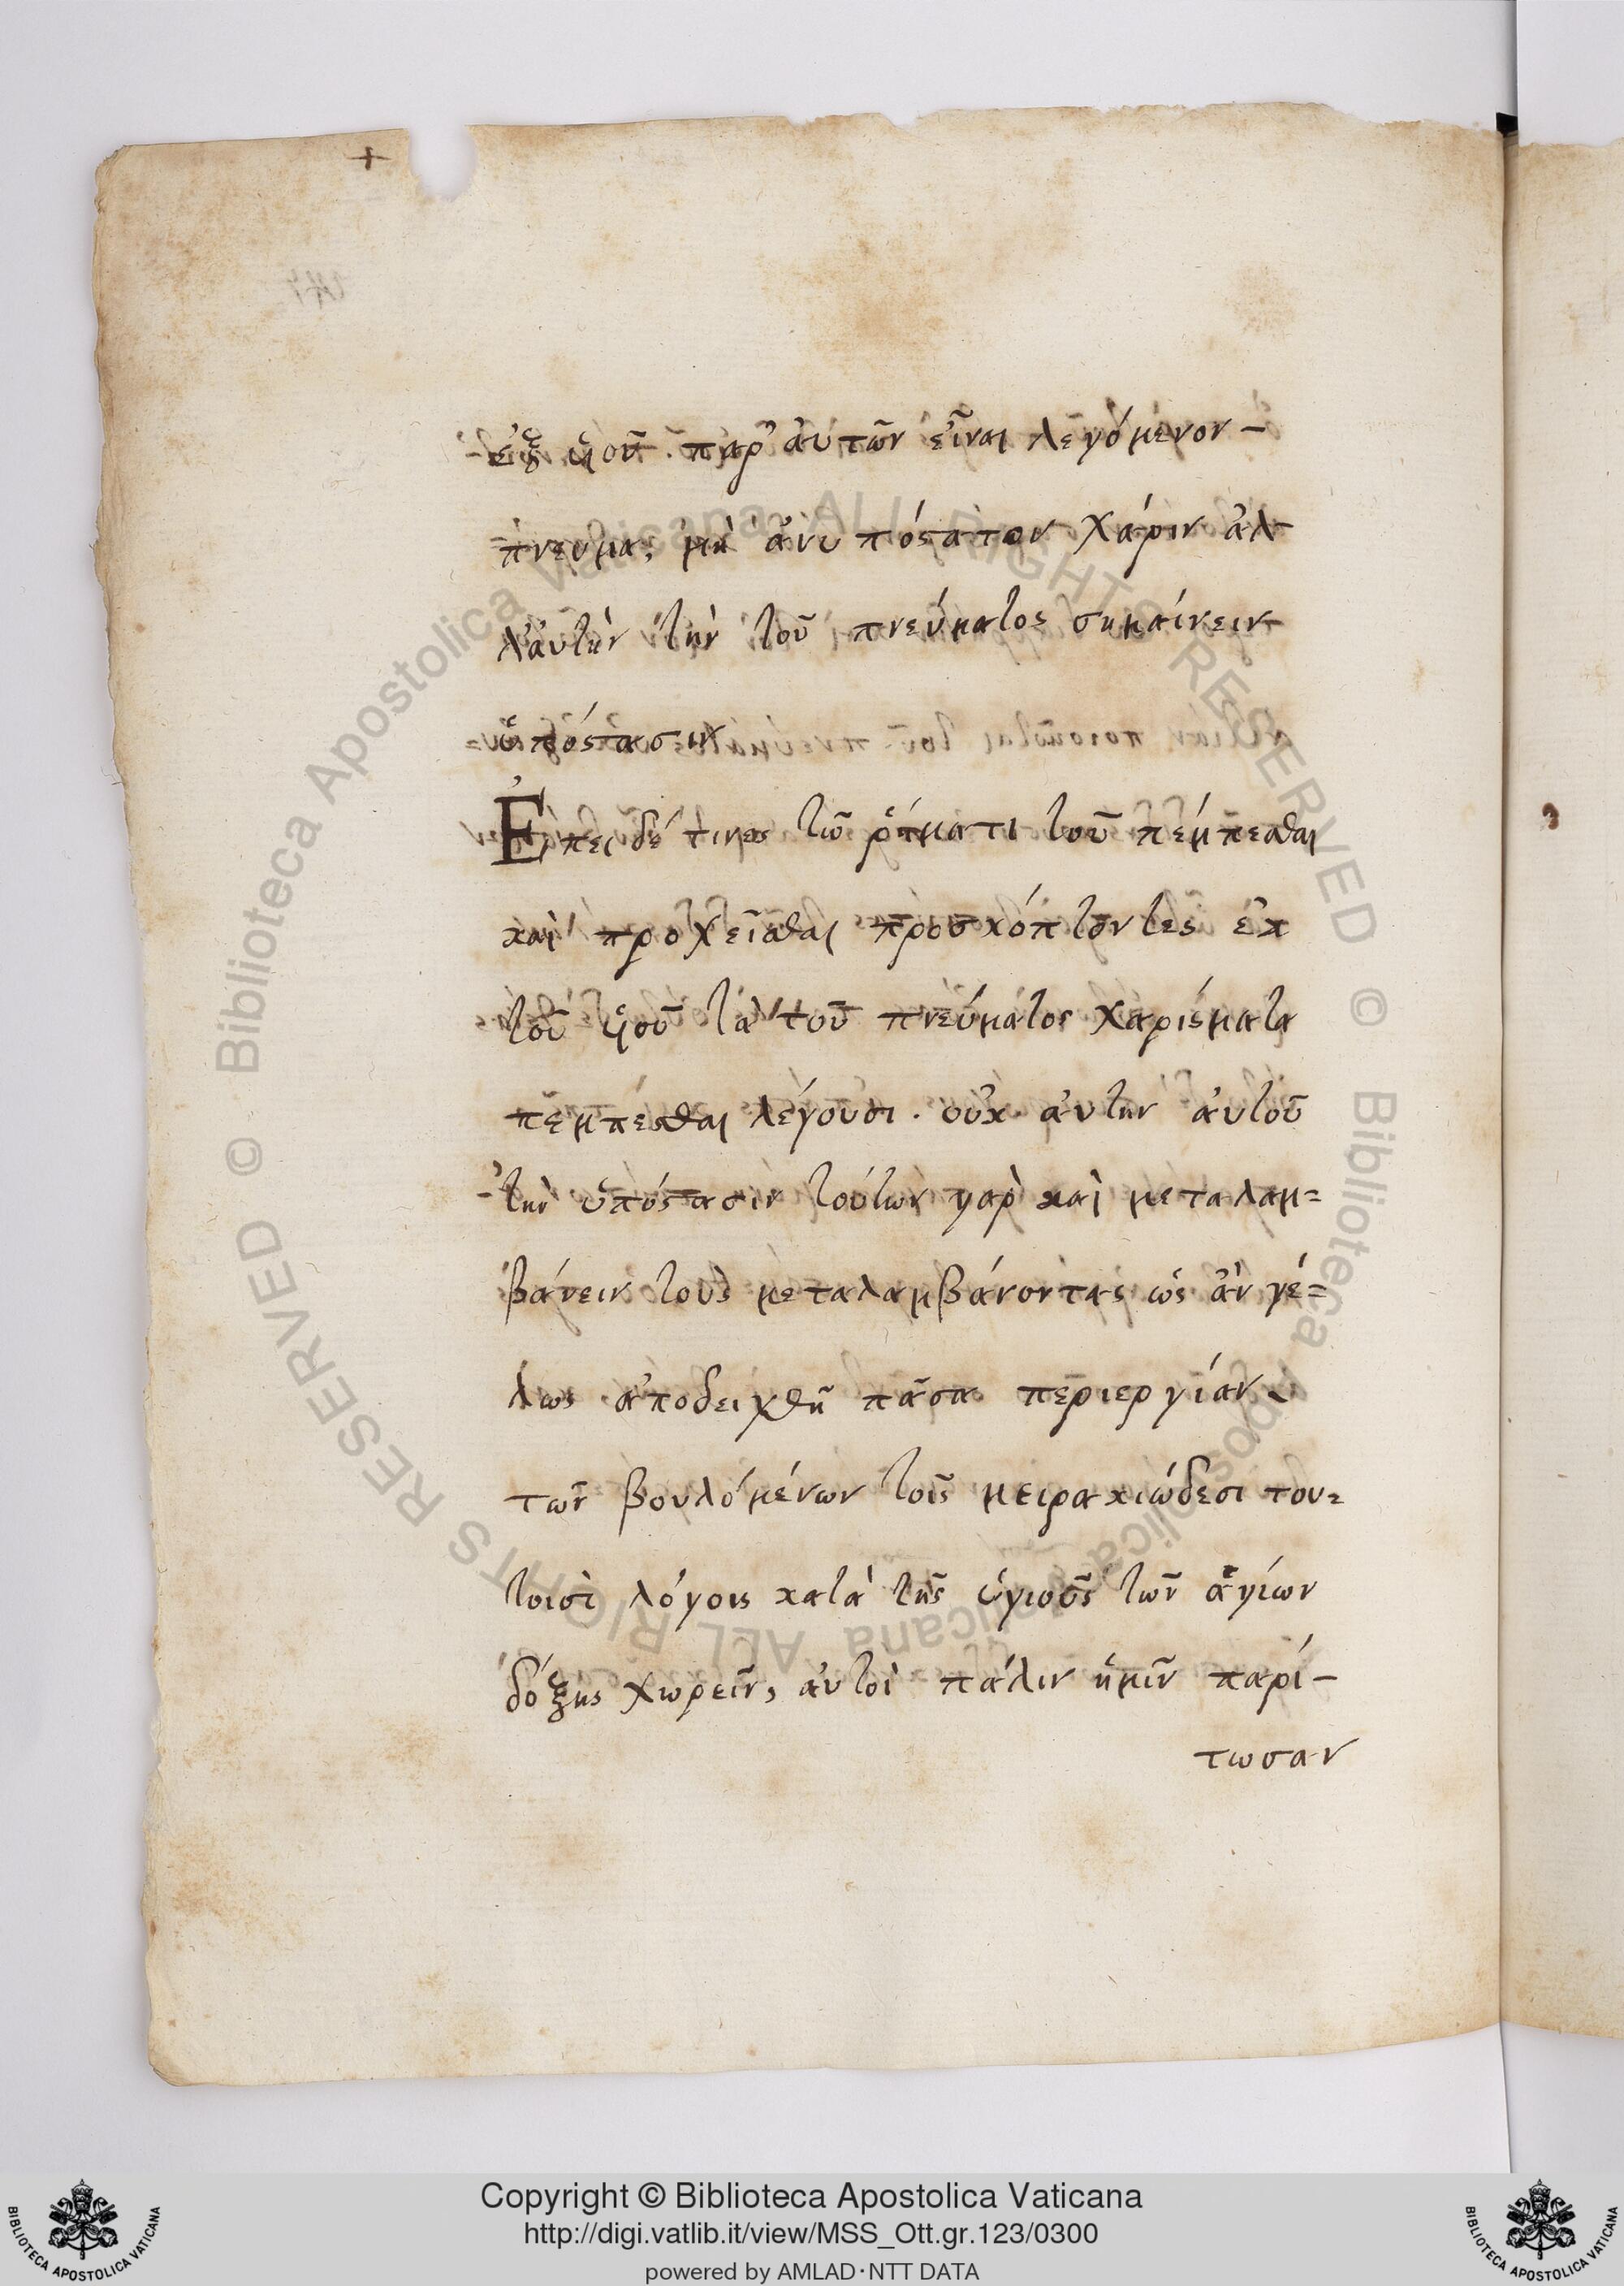 +
ἐξ υἱοῦ. παρ' ἀυτῶν εἶναι λεγόμενον-
πνευμα, μὴ ἀνυπόστατον χάριν ἀλ-
λ' ἀυτὴν τὴν τοῦ πνεύματος σημαίνειν
ὑπόστασιν
Ἐπειδή τινες τῶ ῥήματι τοῦ πέμπεσθαι
καὶ προχεῖσθαι προσκόπτοντες ἐκ
τοῦ υἱοῦ τὰ τοῦ πνεύματος χαρίσματα
πέμπεσθαι λέγουσι. οὐκ ἀυτὴν ἀυτοῦ
τὴν ὑπόστασιν τούτων γαρ καὶ μεταλαμ=
βάνειν τοὺς μεταλαμβάνοντας ὡς ἀν γέ=
λως ἀποδειχθῆ πᾶσα περιεργίαν
τῶν βουλομένων τοῖς μειρακιώδεσι του=
τοισὶ λόγοις κατὰ τῆς ὑγιοῦς τῶν ἁγίων
δόξης χωρεῖν, ἀυτοὶ πάλιν ἡμῖν παρί-
τωσαν
Copyright © Biblioteca Apostolica Vaticana
http://digi.vatlib.it/view/MSS_Ott.gr.123/0300
powered by AMLAD·NTT DATA
BIBLIOTECA APOSTOLICA VATICANA
BIBLIOTECA APOSTOLICA VATICANA
© Biblioteca Apostolica Vaticana ALL RIGHTS RESERVED © Biblioteca Apostolica Vaticana ALL RIGHTS RESERVED